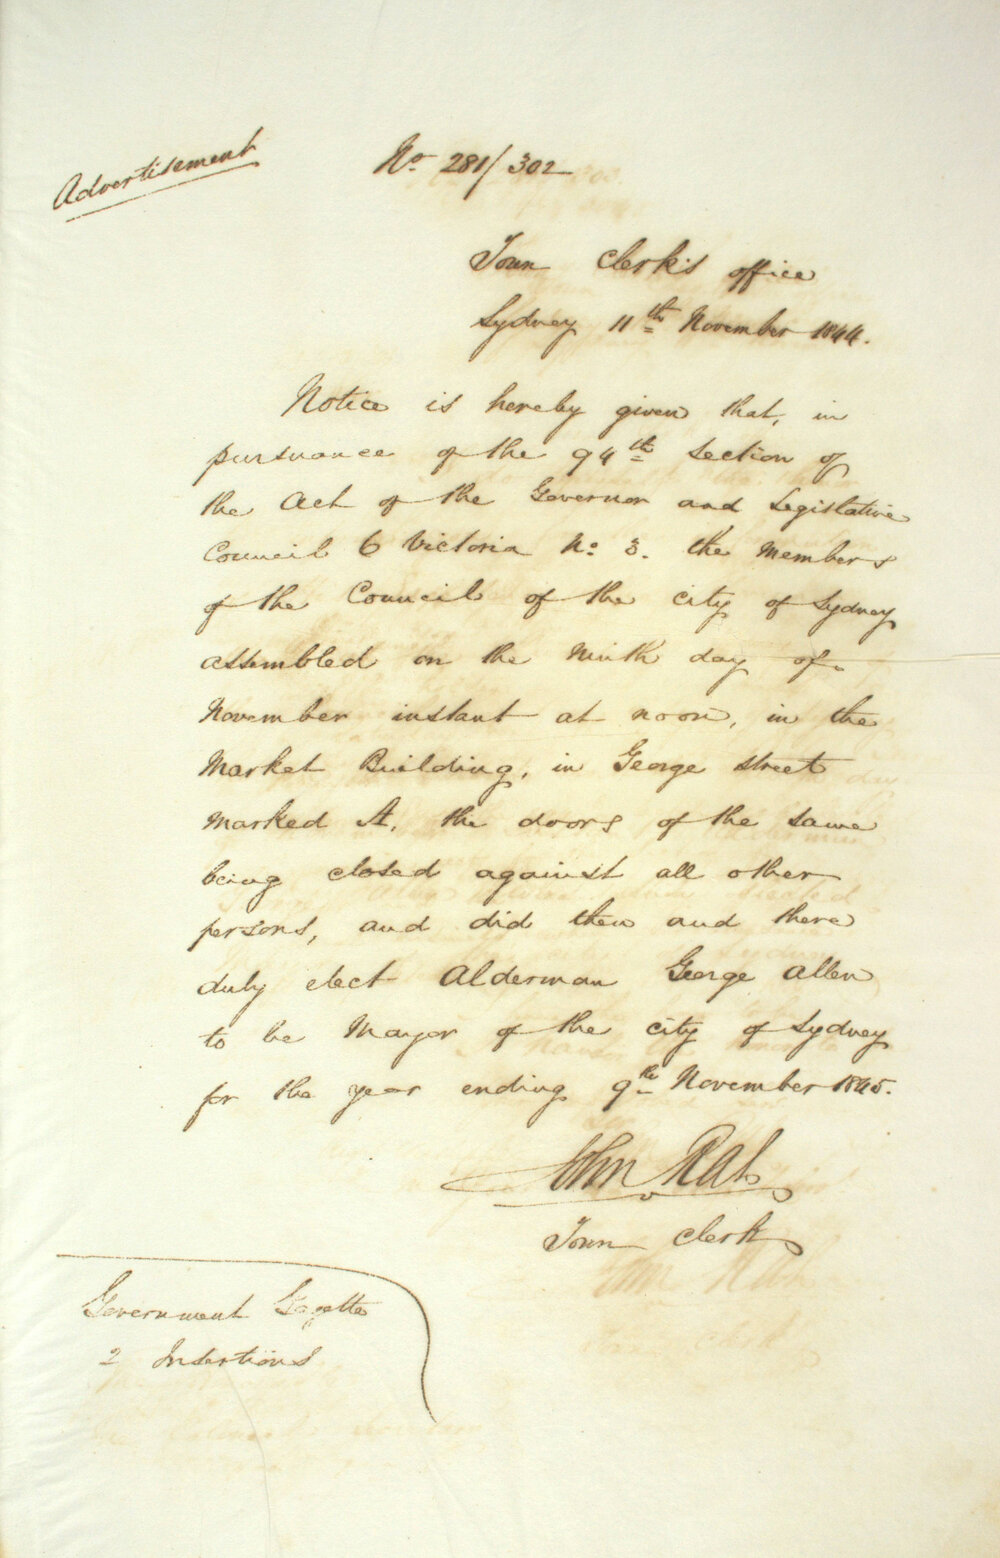 Advertisement
No 281/302
Town Clerk's office
Sydney 11th November 1844.
Notice is hereby given that, in
pursuance of the 94th Section of
the Act of the Governor and Legislative
Council 6 Victoria No 3. the Members
of the Council of the City of Sydney
assembled on the Ninth day of
November instant at noon, in the
Market Building, in George street
marked A, the doors of the same
being closed against all other
persons, and did then and there
duly elect Alderman George Allen
to be Mayor of the city of Sydney
for the year ending 9th November 1845.
John Rae
Town Clerk
Government Gazette
2 Insertions